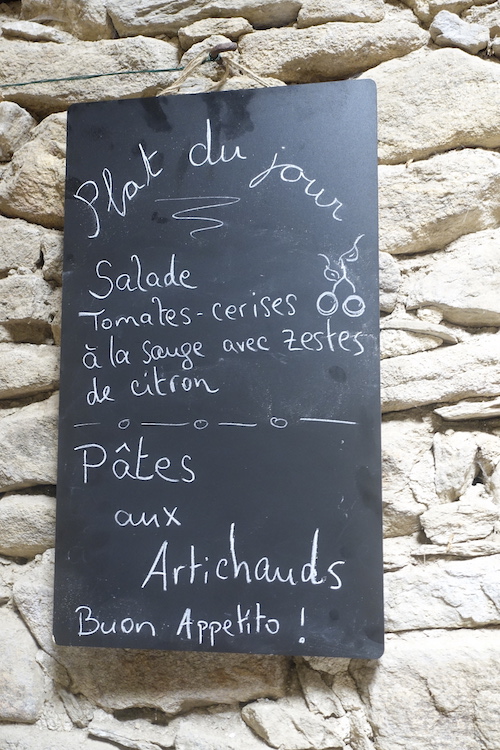 Plat du jour
Salade
Tomates-cerises
à la sauge avec zestes
de citron
Pâtes
aux
Artichauds
Buon Appetito !